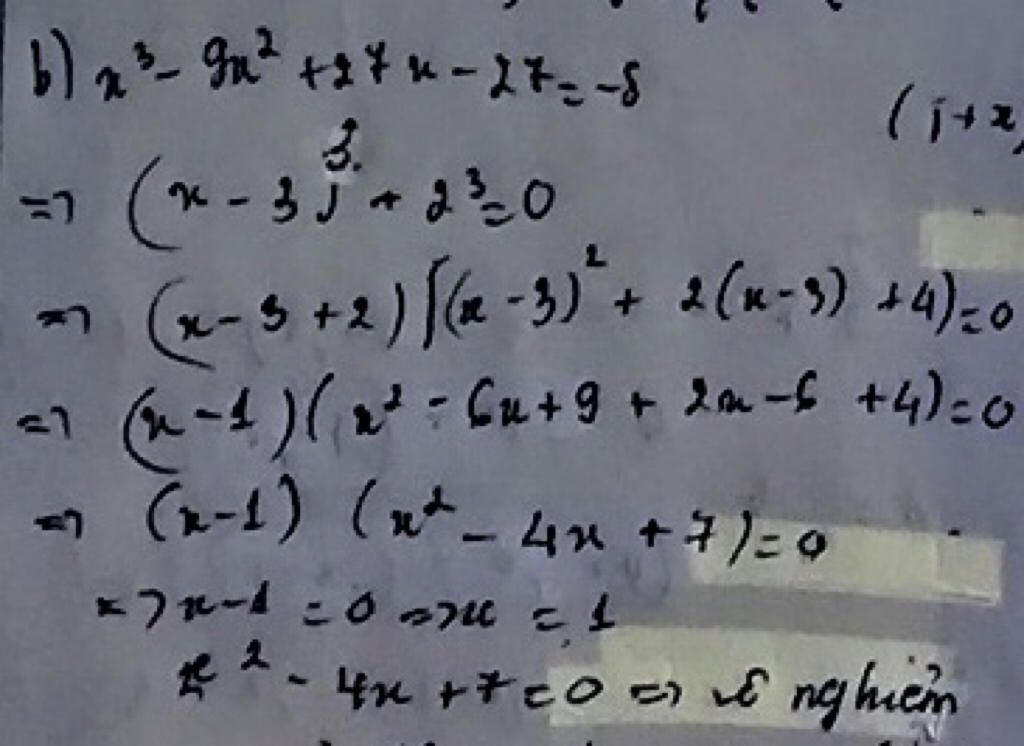 b) x³ - 9x² + 27x - 27 = -8
(1 + x)
=> (x - 3)³ + 2³ = 0
=> (x - 3 + 2) [(x - 3)² + 2(x - 3) + 4) = 0
=> (x - 1)(x² - 6x + 9 + 2x - 6 + 4) = 0
=> (x - 1) (x² - 4x + 7) = 0
=> x - 1 = 0 => x = 1
x² - 4x + 7 = 0 => vô nghiệm